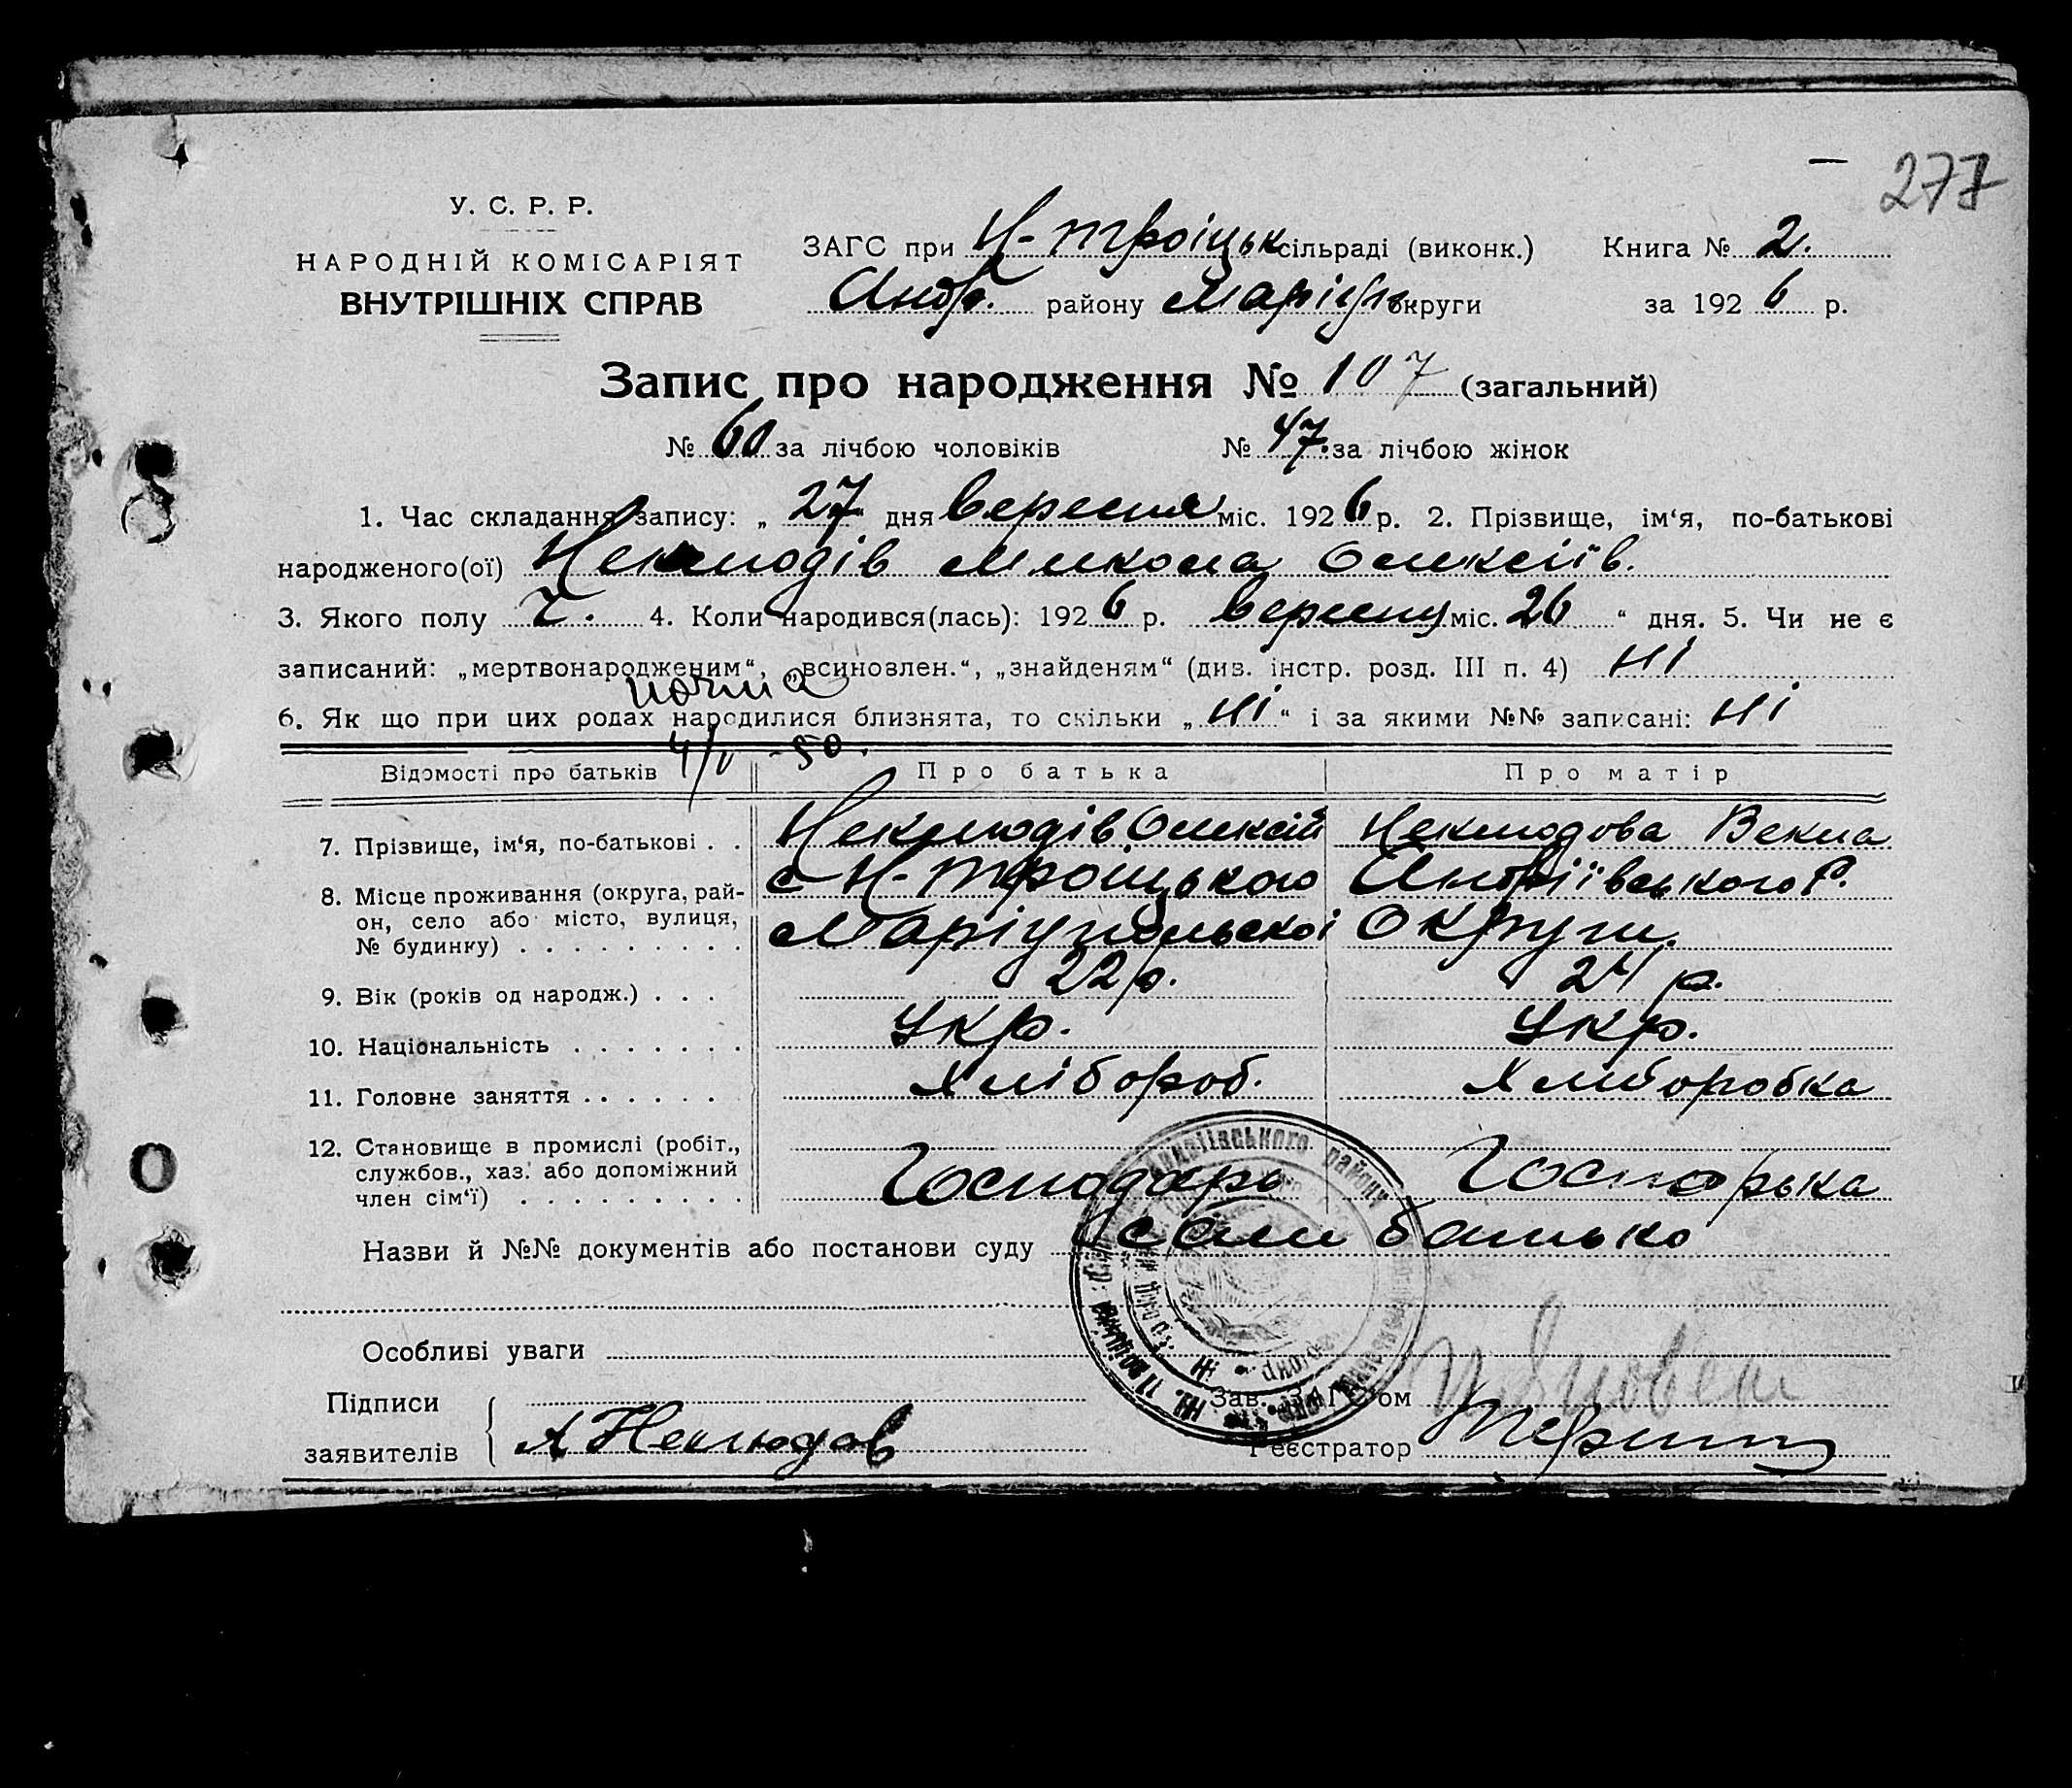 277
У. С. Р. Р.
НАРОДНІЙ КОМІСАРІЯТ
ВНУТРІШНІХ СПРАВ
ЗАГС при Н-Троіцьк сільраді (виконк.) Книга № 2.
Андр. району Маріуп округи за 1926 р.
Запис про народження № 107 (загальний)
№ 60 за лічбою чоловіків № 47. за лічбою жінок
1. Час складання запису: „ 27 дня вересня міс. 1926 р. 2. Прізвище, ім‘я, по-батькові
народженого(ої) Неклюдів Микола Олексіїв.
3. Якого полу ч. 4. Коли народився(лась): 1926 р. вересня міс. 26 “ дня. 5. Чи не є
записаний: „мертвонародженим“, „всиновлен.“, „знайденям“ (див. інстр. розд. III п. 4) ні
6. Як що при цих родах народилися близнята, то скільки „ ні “ і за якими №№ записані: ні
Відомості про батьків Про батька Про матір
7. Прізвище, ім‘я, по-батькові . . Неклюдів Олексій Неклюдова Векла
8. Місце проживання (округа, рай-
он, село або місто, вулиця,
№ будинку) . . . . . . . . .
с Н-Троіцького Андріївського Р.
Маріупольскоі Округи.
9. Вік (років од народж.) . . . 22 р. 24 р.
10. Національність . . . . . . . Укр. Укр.
11. Головне заняття . . . . . . Хлібороб. Хліборобка
12. Становище в промислі (робіт.,
службов., хаз. або допоміжний
член сім‘ї) . . . . . . . . .
Господарь Госпорька
Назви й №№ документів або постанови суду сами батько
Особливі уваги
Підписи
заявителів А Неклюдов
Зав. ЗАГС‘ом
Реєстратор